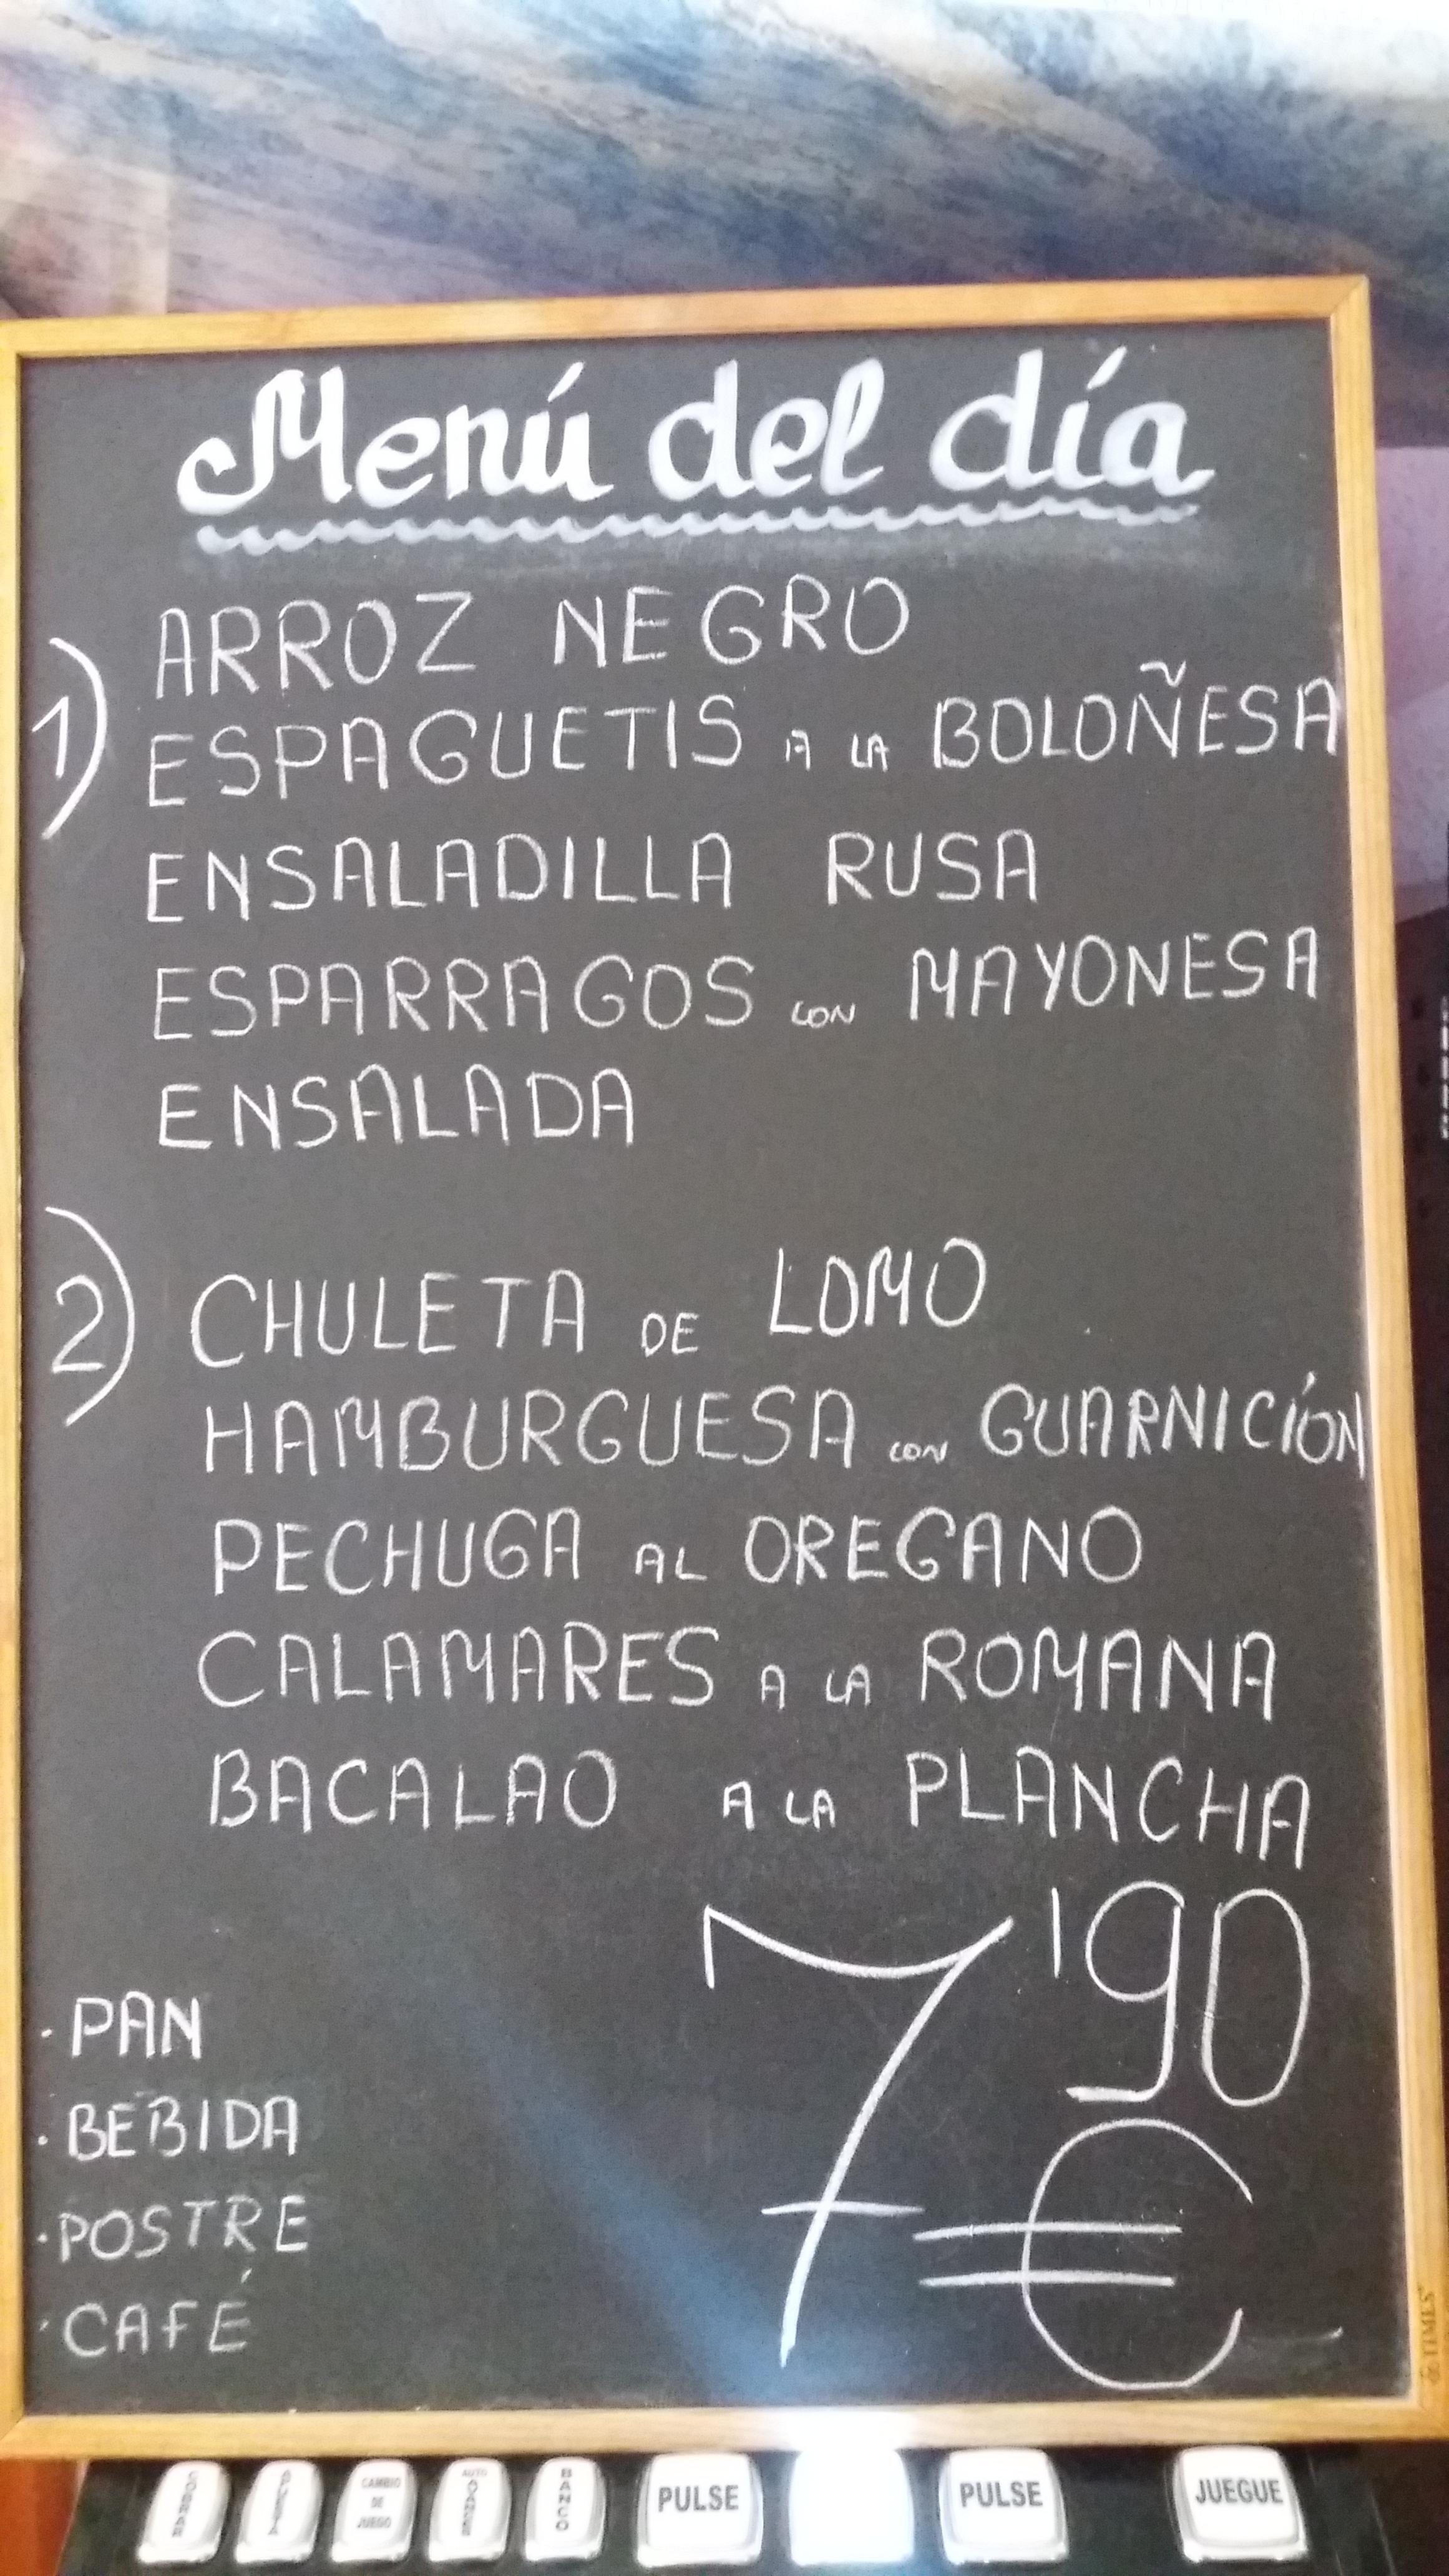 Menú del día
1) ARROZ NEGRO
ESPAGUETIS A LA BOLOÑESA
ENSALADILLA RUSA
ESPARRAGOS CON MAYONESA
ENSALADA
2) CHULETA DE LOMO
HAMBURGUESA CON GUARNICIÓN
PECHUGA AL OREGANO
CALAMARES A LA ROMANA
BACALAO A LA PLANCHA
7'90 €
· PAN
· BEBIDA
· POSTRE
· CAFÉ
TIMES
COBRAR
APUESTA
CAMBIO DE JUEGO
AUTO AVANCE
BANCO
PULSE
PULSE
JUEGUE